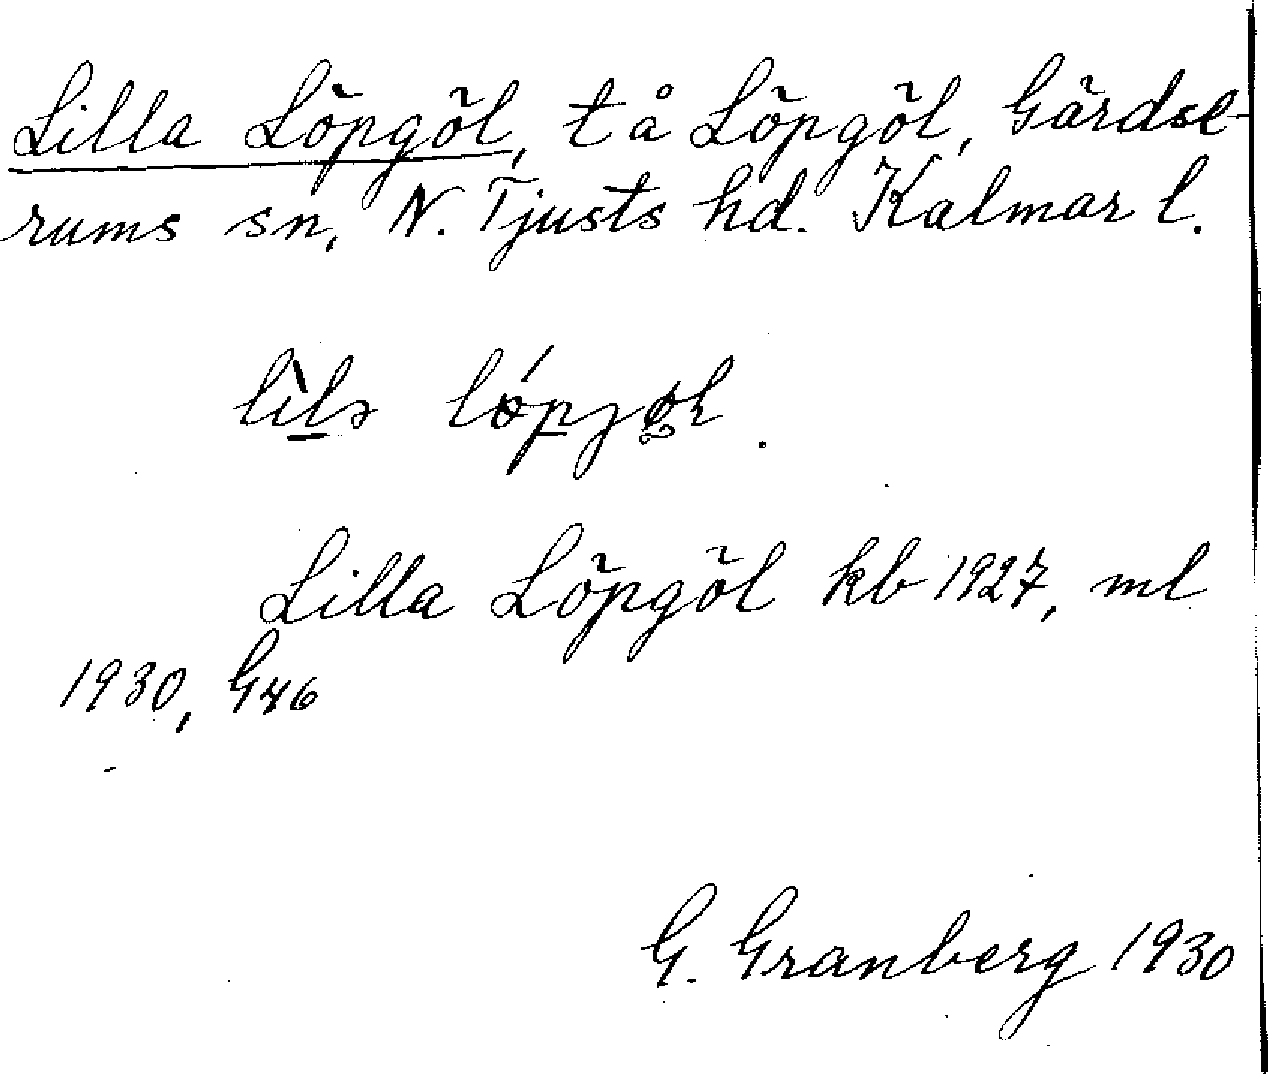 Lilla Löpgöl, t å Löpgöl, Gärdse-
rums sn, N. Tjusts hd. Kalmar l.
Lilla Löpgöl kb 1927, ml
1930, G46
G. Granberg 1930